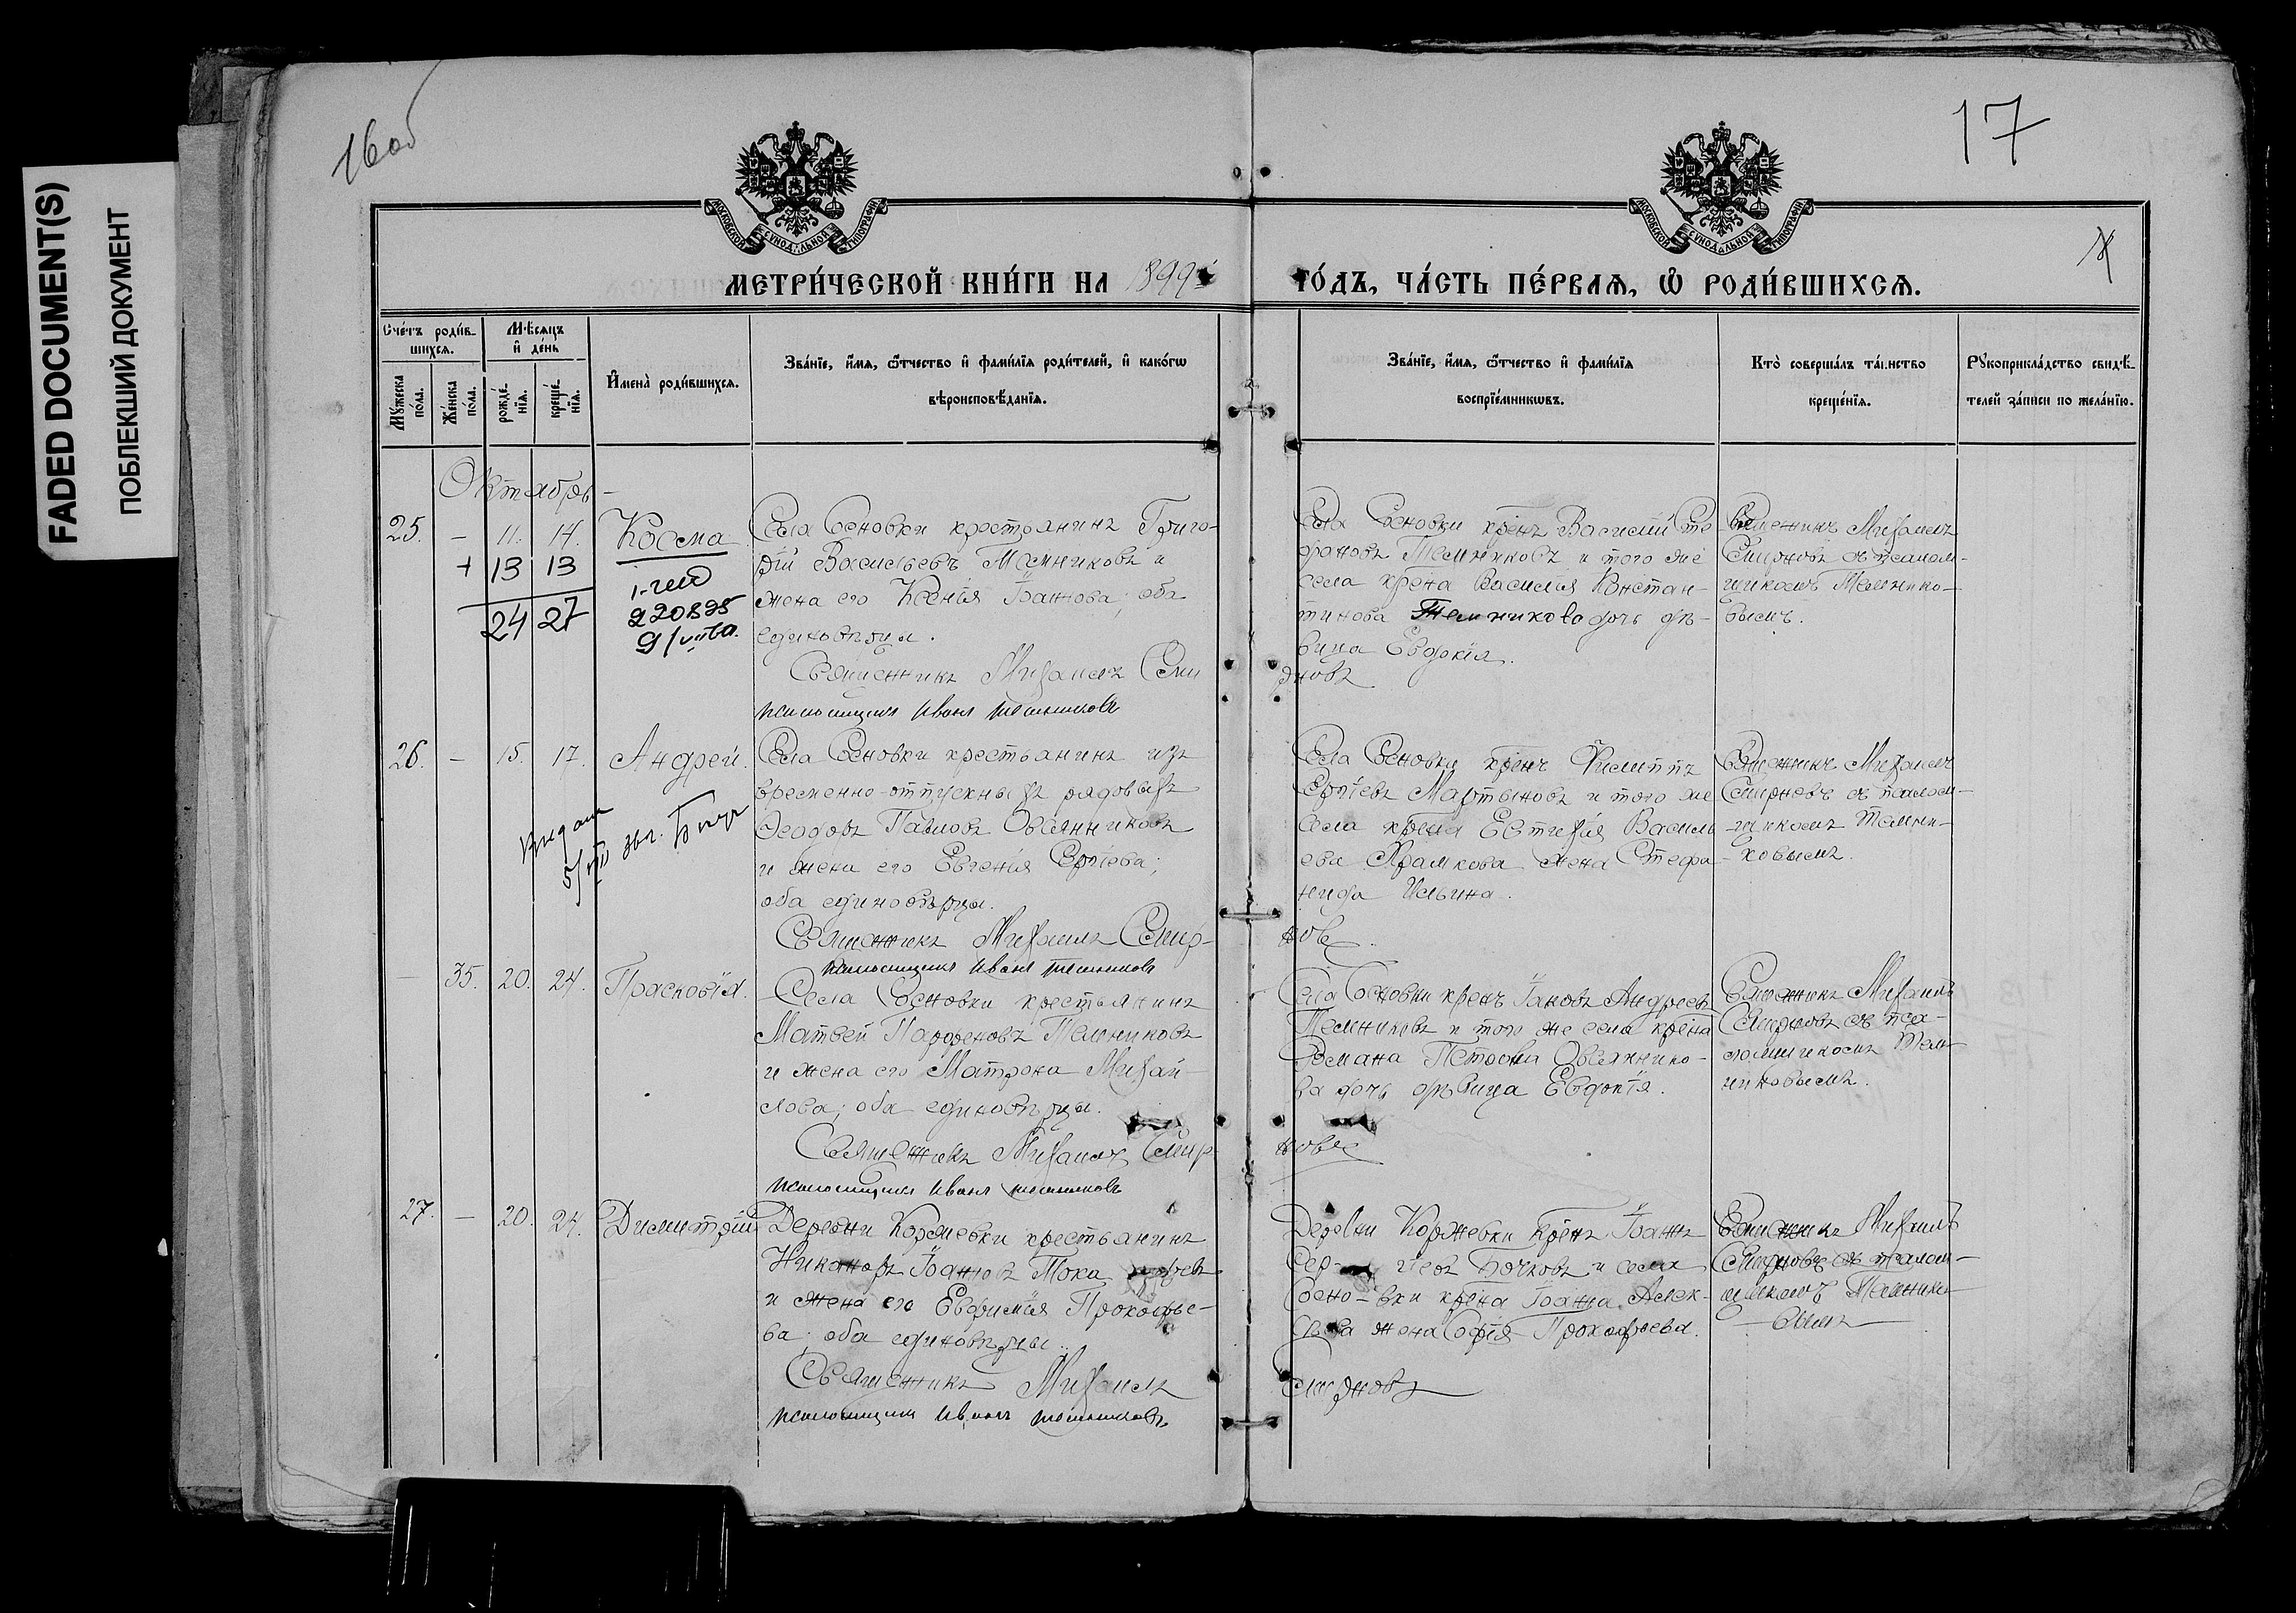 FADED DOCUMENT(S)
ПОБЛЕКШИЙ ДОКУМЕНТ
16об
17
МОСКОВСКОЙ СѴНОДАЛЬНОЙ ТИПОГРАФІИ
МОСКОВСКОЙ СѴНОДАЛЬНОЙ ТИПОГРАФІИ
МЕТРИ́ЧЕСКОЙ КНИ́ГИ НА 1899й
ГО́ДЪ, ЧА́СТЬ ПЕ́РВАѦ, Ѽ РОДИ́ВШИХСѦ.
Сче́тъ роди́в-
шихсѧ.
Мꙋ́жеска по́ла.
Же́нска по́ла.
Мѣ́сѧцъ и҆ де́нь
рожде́-нїѧ.
креще́-нїѧ.
И҆мена̀ роди́вшихсѧ.
Зва́нїе, и҆́мѧ, ѻ҆́тчество и҆ фами́лїѧ роди́телей, и҆ како́гѡ
вѣроисповѣ́данїѧ.
Зва́нїе, и҆́мѧ, ѻ҆́тчество и҆ фами́лїѧ
воспрїе́мникѡвъ.
Кто̀ соверша́лъ та́инство
креще́нїѧ.
Рꙋкоприкла́дство свидѣ́-
телей за́писи по жела́нїю.
Октябрь
25. — 11. 14. Косма
+ 13 13
24 27
220895
Села Сосновки крестьянинъ Григо-
рій Васильевъ Темниковъ и
жена его Ксенія Іоаннова; оба
единовѣрцы.
Священникъ Михаилъ Сми
рновъ
псаломщикъ Иванъ Темниковъ
Села Сосновки крѣнъ Василій Сте
фановъ Темниковъ и того же
села крѣна Василія Констан-
тинова Темникова дочь дѣ-
вица Евдокія.
Священникъ Михаилъ
Смирновъ съ псалом-
щикомъ Темнико-
вымъ.
26. — 15. 17. Андрей.
Выдана
Села Сосновки крестьянинъ изъ
временно-отпускныхъ рядовыхъ
Ѳеодоръ Павловъ Овсянниковъ
и жена его Евгенія Сергіева;
оба единовѣрцы.
Священникъ Михаилъ Смир-
новъ.
псаломщикъ Иванъ Темниковъ
Села Сосновки крѣнъ Филиппъ
Сергіевъ Мартыновъ и того же
села крѣна Евтихія Василь
ева Храмкова жена Стефа
нида Ильина.
Священникъ Михаилъ
Смирновъ съ псалом-
щикомъ Темни-
ковымъ.
— 35. 20. 24. Прасковія.
Села Сосновки крестьянинъ
Матвей Парфеновъ Темниковъ
и жена его Матрона Михай-
лова; оба единовѣрцы.
Священникъ Михаилъ Смир-
новъ
псаломщикъ Иванъ Темниковъ
Села Сосновки крѣнъ Андреевъ
Темниковъ и того же села крѣна
Романа Петрова Овсяннико-
ва дочь дѣвица Евдокія.
Священникъ Михаилъ
Смирновъ съ пса-
ломщикомъ Тем-
никовымъ.
27. — 20. 24. Димитрій
Деревни Коржевки крестьянинъ
Никаноръ Іоанновъ
и жена его Евфимія Прокофье-
ва; оба единовѣрцы.
Священникъ Михаилъ
Смирновъ
псаломщикъ Иванъ Темниковъ
Деревни Коржевки крѣнъ Іоаннъ
Сер- гіевъ Бочковъ и села
Сосно-вки крѣна Іоанна Алек-
жена Софія Прокофьева.
Священникъ Михаилъ
Смирновъ съ псалом-
щикомъ Темнико-
вымъ